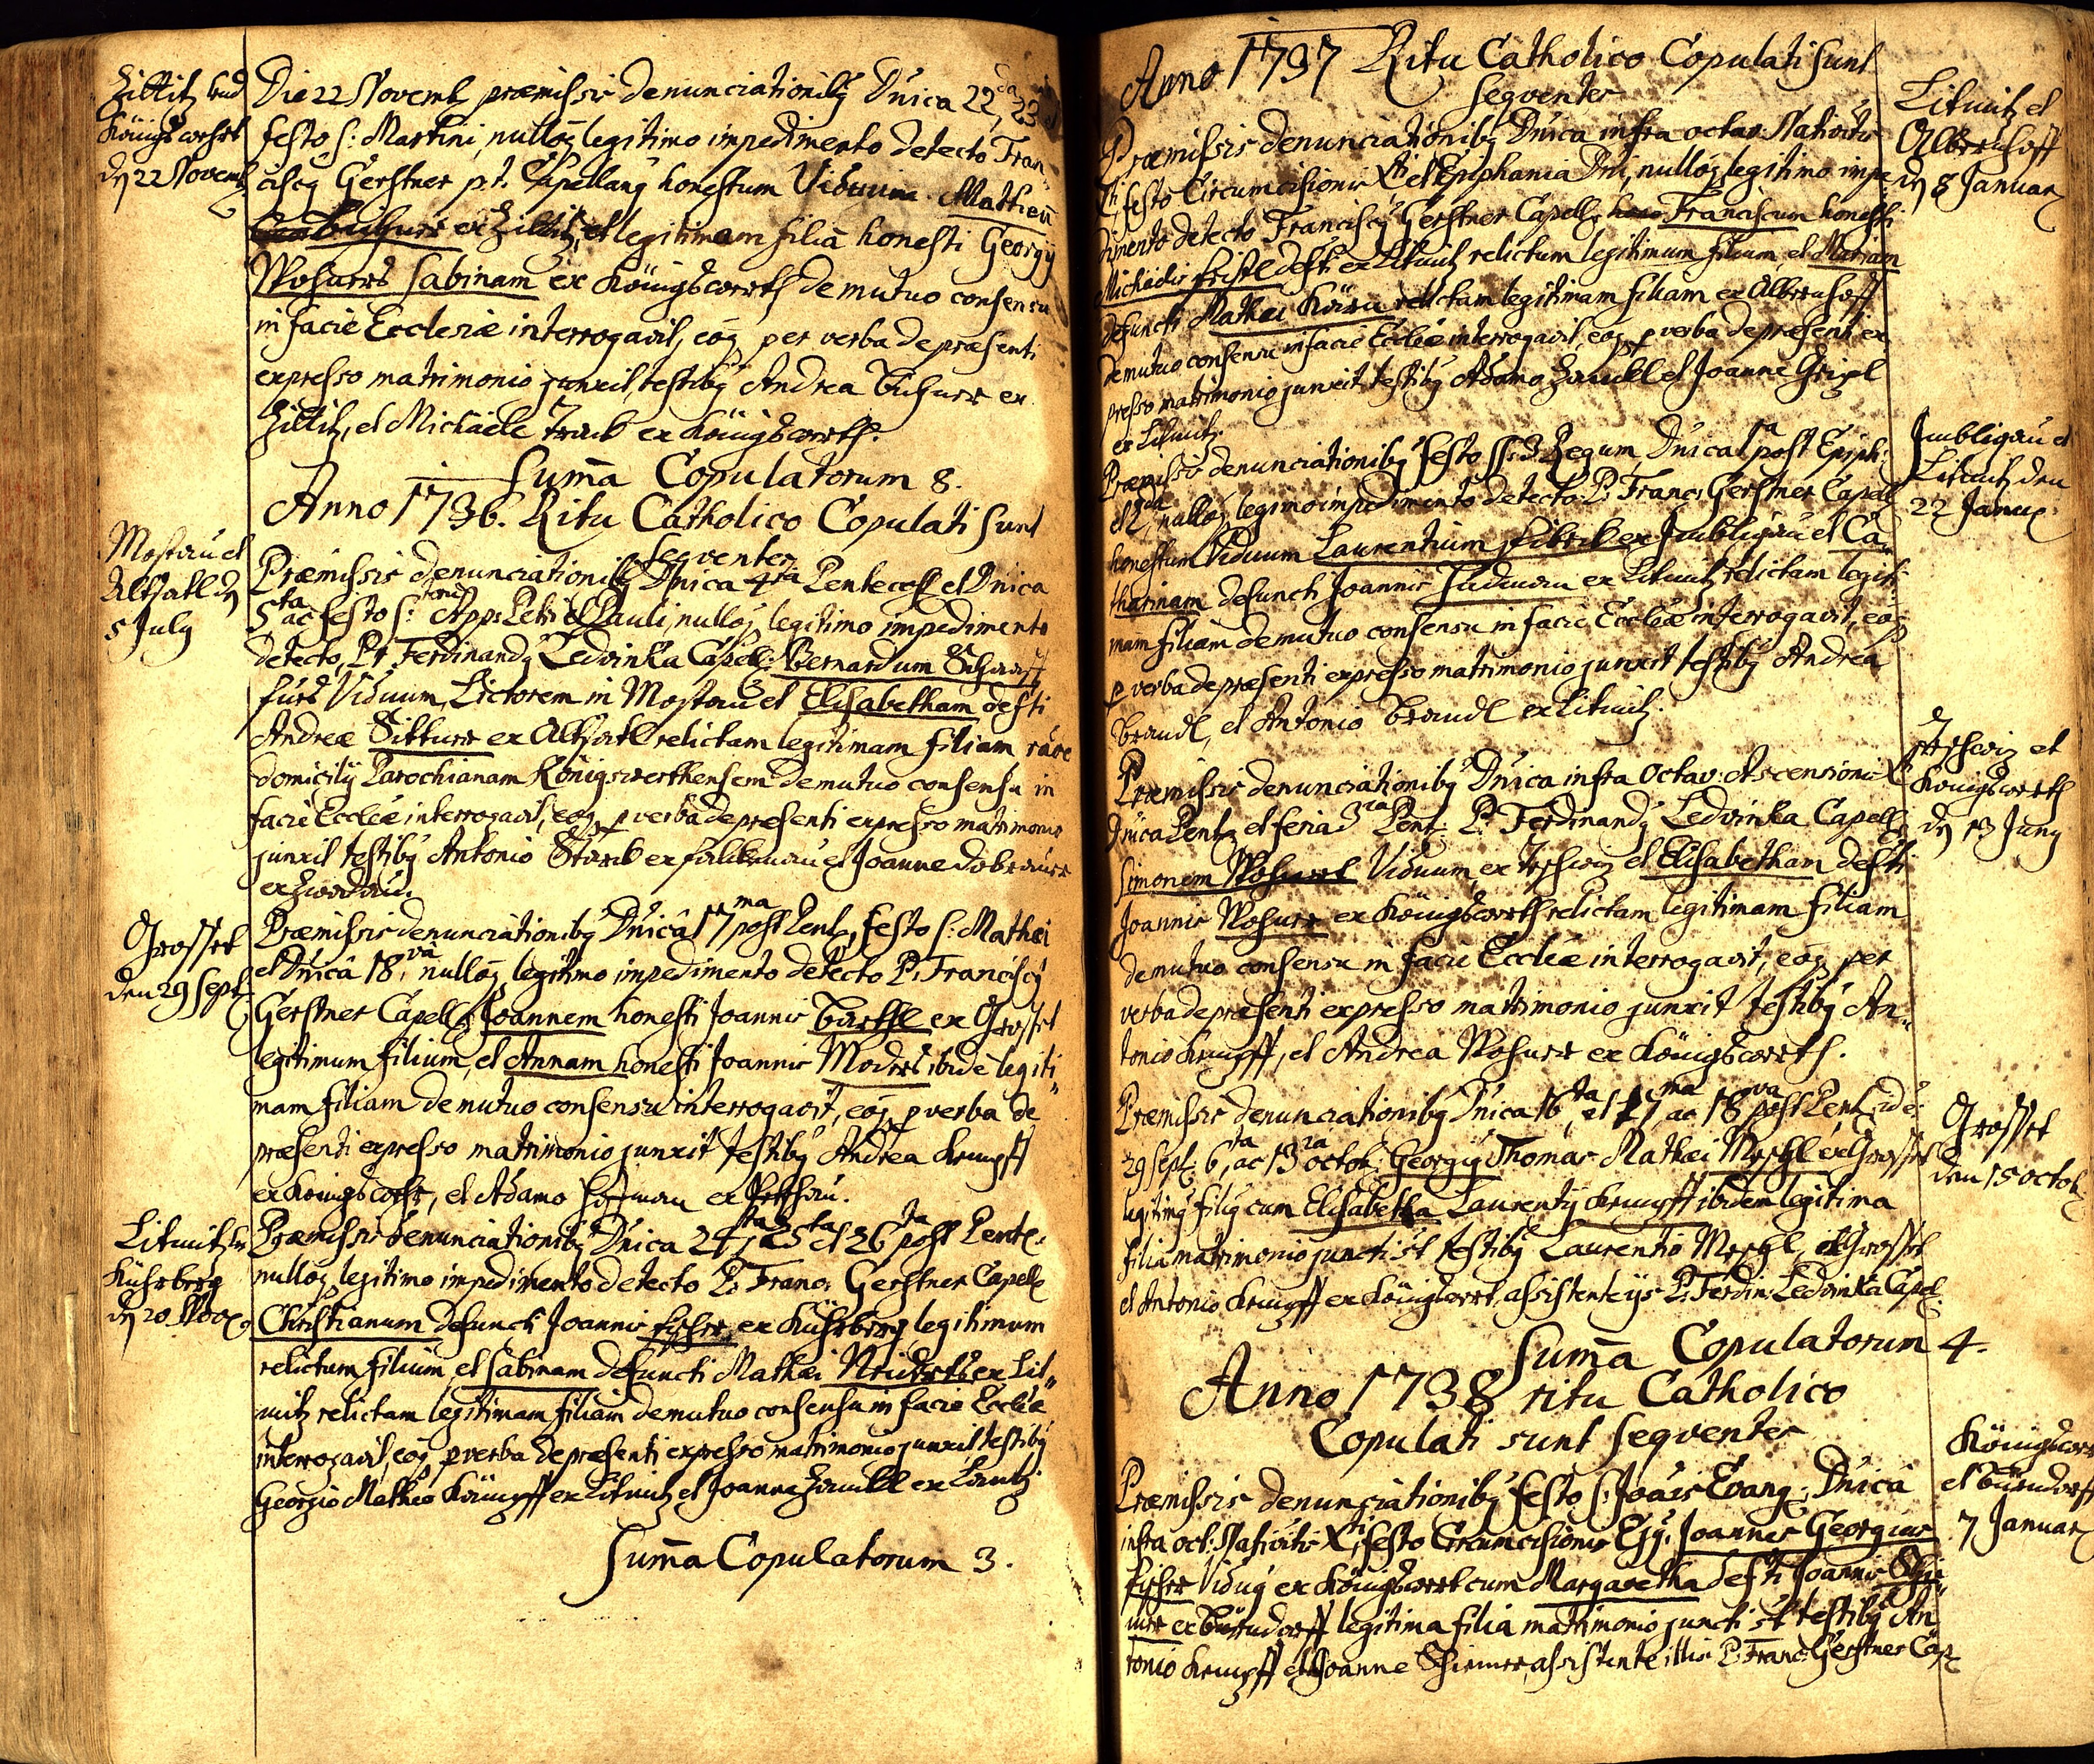 Zillitz und
Königswehrt
dḡ 22 Novemb
Die 22 Novemb præmissis denunciationibȝ Dnica 22da, 23
festo S: Martini, nulloq legitimo impedimento detecto Fran-
ciscȝ Gerstner p.t. Capellanȝ honestum Viduum Matheū
ex Zillitz, et legitimam filiā honesti Georgij
Sabinam ex Königswerth de mutuo consensu
in facie Ecclesiæ interrogavit, eosq per verba de præsenti
expresso matrimonio junxit, testibȝ Andrea ex
Zillitz, et Michaële ex Königswerth.
Summa Copulatorum 8.
Anno 1736. Ritu Catholico Copulati sunt
Seqventes
Mostau et
Altsatl dḡ
5 July
Præmissis denunciationibȝ Dnica 4ta Pentecost et Dnica
5ta ac festo S: App: Petri et Pauli, nulloq legitimo impedimento
detecto, Pr Ferdinandȝ Ledvinka Capell: Bernardum
Viduum, Lictorem in Mostau et Elisabetham defti
Andreæ ex Altsatl relictam legitimam filiam
domicilij Parochianam Königswerthensem de mutuo consensu in
facie Eccleiæ interrogavit, eosq p verba de præsenti expresso matrimonio
junxit testibȝ Antonio Starck ex Falckenau et Joanne
ex Zwodau.
Grasset
den 29 Sept:
Præmissis denunciationibȝ Dnicâ 17ma post Pent, festo S: Mathæi
et Dnicâ 18vâ, nulloq legitimo impedimento detecto P. Franciscȝ
Gerstner Capell: Joannem honesti Joannis Barthl ex Grasset
legitimum filium, et Annam honesti Joannis ibidē legiti-
mam filiam de mutuo consensu interrogavit, eosq p verba de
præsenti expresso matrimonio junxit testibȝ Andrea Krumpff
ex Königswerth, et Adamo Hoffman ex
Litmitz et
Kührberg
dḡ 20 Nov:
Præmissis denunciationibȝ Dnica 24ta, 25ta et 26ta post Pente:
nulloq legitimo impedimento detecto P: Franc: Gerstner Capell:
Christianum defuncti Joannis ex Kührberg legitimum
relictum filium, et Sabinam defuncti Mathæi ex Lit-
mitz relictam legitimam filiam de mutuo consensu in facie Eccleæ
interrogavit, eosq p verba de præsenti expresso matrimonio junxit, testibȝ
Georgio Matheo ex Litmitz et Joanne ex
Summa Copulatorum 3.
Anno 1737 Ritu Catholico Copulati sunt
Seqventes
Litmitz et
Albernhoff
dḡ 8 Januar
Præmissis denunciationibȝ Dnica infra octav: Nativitis
Xti, festo Circumcisionis Xti et Epiphania Dni, nulloq legitimo impe-
dimento detecto Franciscȝ Gerstner Capell: Franciscum honesti
Michaelis defti ex Litmitz relictum legitimum filium et Mariam
defuncti Mathæi relictam legitimam filiam ex Albernhoff
de mutuo consensu in facie Eccleæ interrogavit, eosq p verba de præsenti ex-
presso matrimonio junxit testibȝ Adamo et Joanne
ex Litmitz.
et
Litmitz den
22 Janu:
Præmissis denunciationibȝ festo SS: 3 Regum Dnica 1a post Epiph:
et 2da, nulloq legimo impedimento detecto P: Franc: Gerstner Capell:
honestum Viduum Laurentium ex et Ca-
tharinam defuncti Joannis ex Litmitz relictam legiti-
mam filiam de mutuo consensu in facie Eccleæ interrogavit, eosq
p verba de præsenti expresso matrimonio junxit testibȝ Andrea
Brandl, et Antonio Brandl ex Litmitz.
et
Königswerth
dḡ 13 Juny
Præmissis denunciationibȝ Dnica infra Octav: Ascensionis Xti
Dnica Pent: et feria 3ia Pent: P: Ferdinandȝ Ledvinka Capell:
Simonem Viduum ex et Elisabetham defti
Joannis ex Königswerth relictam legitimam filiam
de mutuo consensu in facie Eccleæ interrogavit, eosq per
verba de præsenti expresso matrimonio junxit testibȝ An-
tonio Krumpff, et Andrea ex Königswerth.
Grasset
den 15 octob
Præmissis denunciationibȝ Dnica 16ta, et 17ma ac 18va post Pent, id e:
29 Sept: 6ta, ac 13ia octob: Georgiȝ Thomas Mathæi ex Grasset
legitimȝ filiȝ cum Elisabetha Laurentij Krumpff ibidem legitima
filia matrimonio juncti st testibȝ Laurentio ex Grasset
et Antonio Krumpff ex Königswert, assistente ijs P: Ferdin: Ledvinka Capel:
Summa Copulatorum 4.
Anno 1738 ritu Catholico
Copulati sunt seqventes
Königswert
et
7 Januar
Præmissis denunciationibȝ festo S: Joāis Evang: Dnica
infra oct: Nativitis Xti, festo Circumcisionis Ejȝ, Joannes Georgius
Viduȝ ex Königswert cum Margaretha defti Joannis
legitima filia matrimonio juncti st testibȝ An-
tonio Krumpff et Joanne assistente illis P: Franc: Gerstner Cap: